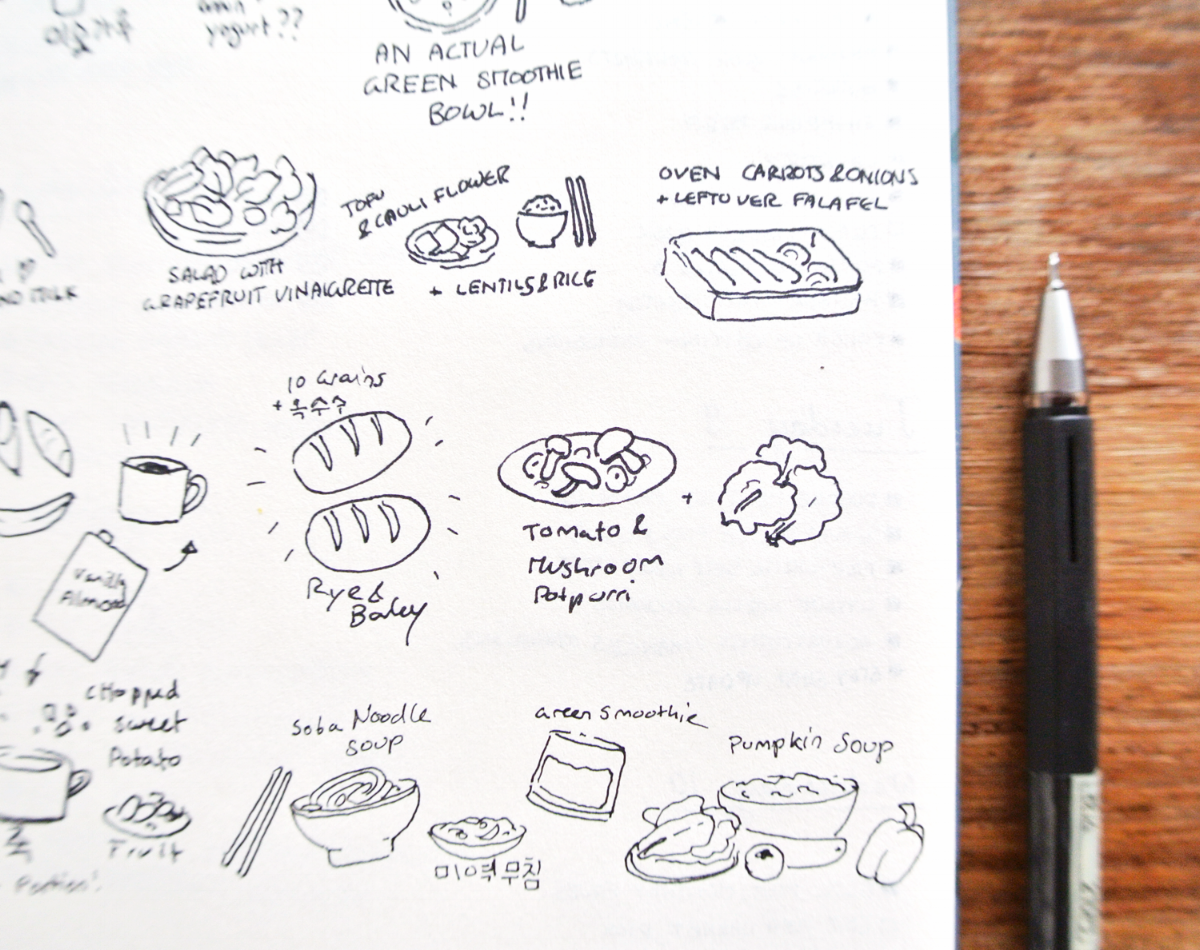 yogurt??
AN ACTUAL
GREEN SMOOTHIE
BOWL!!
SALAD WITH
GRAPEFRUIT VINAIGRETTE
TOFU
& CAULIFLOWER
+ LENTILS & RICE
OVEN CARROTS & ONIONS
+ LEFTOVER FALAFEL
10 Grains
+ 옥수수
Rye &
Barley
Tomato &
Mushroom
Potpurri
+
Vanilla
Almond
Chopped
sweet
Potato
Fruit
Soba Noodle
Soup
미역무침
Green Smoothie
Pumpkin Soup